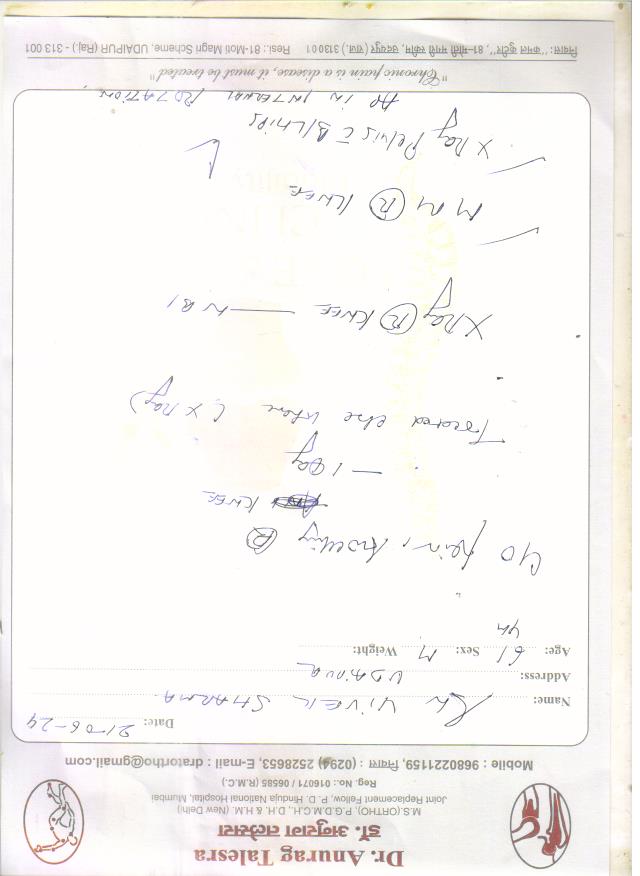 Dr. Anurag Talesra
डॉ. अनुराग तलेसरा
M.S. (ORTHO), P.G.D.M.C.H., D.H. & H.M. (New Delhi)
Joint Replacement Fellow, P. D. Hinduja National Hospital, Mumbai
Reg. No.: 016071 / 06585 (R.M.C.)
Mobile : 9680221159, निवास : (0294) 2528653, E-mail : dratortho@gmail.com
Date: 21-06-24
Name: Sh VIVEK SHARMA
Address: UDAIPUR
Age: 61 Sex: M Weight:
YR
C/O Pain, swelling (R)
KNEE
— 1 Day
Treated else where (X Ray)
X Ray (R) KNEE — NBI
MRI (R) KNEE
X Ray Pelvis c B/L HIPS
AP IN INTERNAL ROTATION
"Chronic pain is a disease, it must be treated"
निवास : "कनक कुटीर", 81-मोती मगरी स्कीम, उदयपुर (राज.) 313001 Resi.: 81-Moti Magri Scheme, UDAIPUR (Raj.) - 313 001